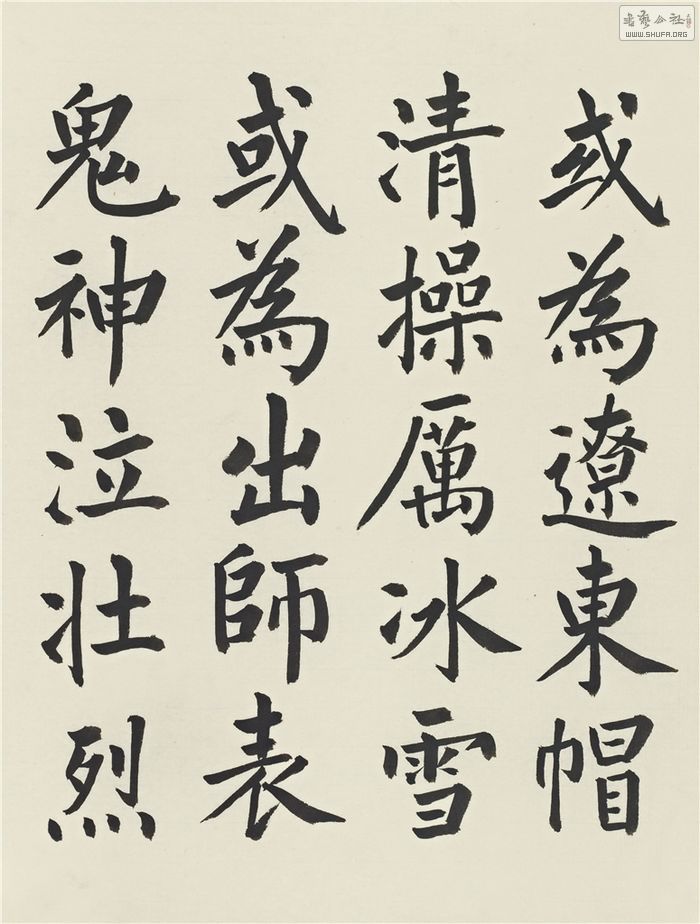 或為遼東帽
清操厲冰雪
或為出師表
鬼神泣壯烈
書藝公社
WWW.SHUFA.ORG